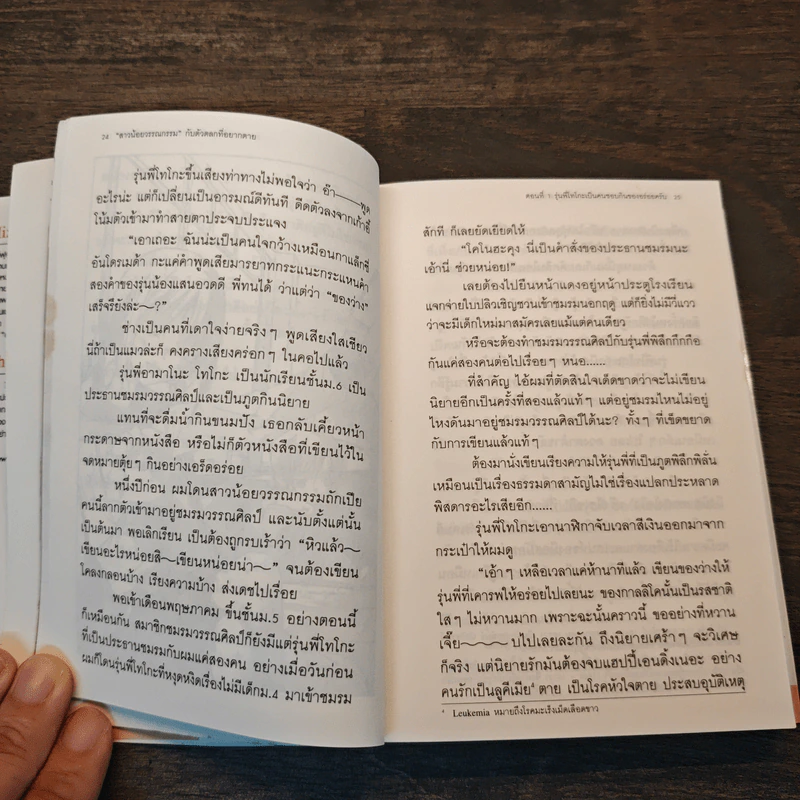 24 "สาวน้อยวรรณกรรม" กับตัวตลกที่อยากตาย
รุ่นพี่โทโกะขึ้นเสียงท่าทางไม่พอใจว่า อ๊า——พูด
อะไรน่ะ แต่ก็เปลี่ยนเป็นอารมณ์ดีทันที ดีดตัวลงจากเก้าอี้
โน้มตัวเข้ามาทำสายตาประจบประแจง
"เอาเถอะ ฉันน่ะเป็นคนใจกว้างเหมือนกาแล็กซี่
อันโดรเมด้า กะแค่คำพูดเสียมารยาทกระแนะกระแหนคำ
สองคำของรุ่นน้องแสนอวดดี พี่ทนได้ ว่าแต่ว่า "ของว่าง"
เสร็จรึยังล่ะ～?"
ช่างเป็นคนที่เดาใจง่ายจริงๆ พูดเสียงใสเชียว
นี่ถ้าเป็นแมวล่ะก็ คงครางเสียงคร่อกๆ ในคอไปแล้ว
รุ่นพี่อามาโนะ โทโกะ เป็นนักเรียนชั้นม.6 เป็น
ประธานชมรมวรรณศิลป์และเป็นภูตกินนิยาย
แทนที่จะดื่มน้ำกินขนมปัง เธอกลับเคี้ยวหน้า
กระดาษจากหนังสือ หรือไม่ก็ตัวหนังสือที่เขียนไว้ใน
จดหมายตุ้ยๆ กินอย่างเอร็ดอร่อย
หนึ่งปีก่อน ผมโดนสาวน้อยวรรณกรรมถักเปีย
คนนี้ลากตัวเข้ามาอยู่ชมรมวรรณศิลป์ และนับตั้งแต่นั้น
เป็นต้นมา พอเลิกเรียน เป็นต้องถูกรบเร้าว่า "หิวแล้ว～
เขียนอะไรหน่อยสิ～เขียนหน่อยน่า～" จนต้องเขียน
โคลงกลอนบ้าง เรียงความบ้าง ส่งเดชไปเรื่อย
พอเข้าเดือนพฤษภาคม ขึ้นชั้นม.5 อย่างตอนนี้
ก็เหมือนกัน สมาชิกชมรมวรรณศิลป์ก็ยังมีแต่รุ่นพี่โทโกะ
ที่เป็นประธานชมรมกับผมแค่สองคน อย่างเมื่อวันก่อน
ผมก็โดนรุ่นพี่โทโกะที่หงุดหงิดเรื่องไม่มีเด็กม.4 มาเข้าชมรม
ตอนที่ 1: รุ่นพี่โทโกะเป็นคนชอบกินของอร่อยครับ 25
สักที ก็เลยยัดเยียดให้
"โคโนฮะคุง นี่เป็นคำสั่งของประธานชมรมนะ
เอ้านี่ ช่วยหน่อย!"
เลยต้องไปยืนหน้าแดงอยู่หน้าประตูโรงเรียน
แจกจ่ายใบปลิวเชิญชวนเข้าชมรมนอกฤดู แต่ก็ยังไม่มีวี่แวว
ว่าจะมีเด็กใหม่มาสมัครเลยแม้แต่คนเดียว
หรือจะต้องทำชมรมวรรณศิลป์กับรุ่นพี่พิลึกกึกกือ
กันแค่สองคนต่อไปเรื่อยๆ หนอ......
ที่สำคัญ ไอ้ผมที่ตัดสินใจเด็ดขาดว่าจะไม่เขียน
นิยายอีกเป็นครั้งที่สองแล้วแท้ๆ แต่อยู่ชมรมไหนไม่อยู่
ไหงดันมาอยู่ชมรมวรรณศิลป์ได้นะ? ทั้งๆ ที่เข็ดขยาด
กับการเขียนแล้วแท้ๆ
ต้องมานั่งเขียนเรียงความให้รุ่นพี่ที่เป็นภูตพิลึกพิลั่น
เหมือนเป็นเรื่องธรรมดาสามัญไม่ใช่เรื่องแปลกประหลาด
พิสดารอะไรเสียอีก......
รุ่นพี่โทโกะเอานาฬิกาจับเวลาสีเงินออกมาจาก
กระเป๋าให้ผมดู
"เอ้าๆ เหลือเวลาแค่ห้านาทีแล้ว เขียนของว่างให้
รุ่นพี่ที่เคารพให้อร่อยไปเลยนะ ของกาลลิโคนั้นเป็นรสชาติ
ใสๆ ไม่หวานมาก เพราะฉะนั้นคราวนี้ ขออย่างที่หวาน
เจี๊ย～～～บไปเลยละกัน ถึงนิยายเศร้าๆ จะวิเศษ
ก็จริง แต่นิยายรักมันต้องจบแฮปปี้เอนดิ้งเนอะ อย่าง
คนรักเป็นลูคีเมีย⁴ ตาย เป็นโรคหัวใจตาย ประสบอุบัติเหตุ
⁴ Leukemia หมายถึงโรคมะเร็งเม็ดเลือดขาว